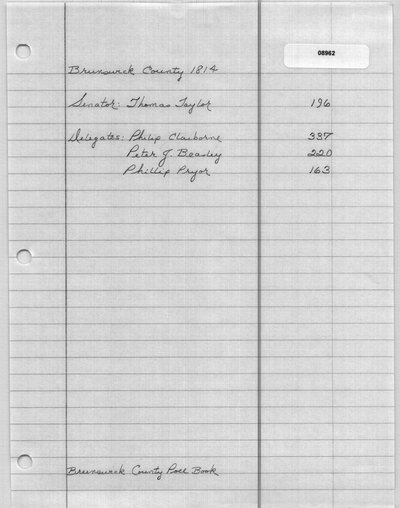 08962
Brunswick County 1814
Senator: Thomas Taylor 196
Delegates: Philip Claiborne 337
Peter J. Beasley 220
Phillip Pryor 163
Brunswick County Poll Book